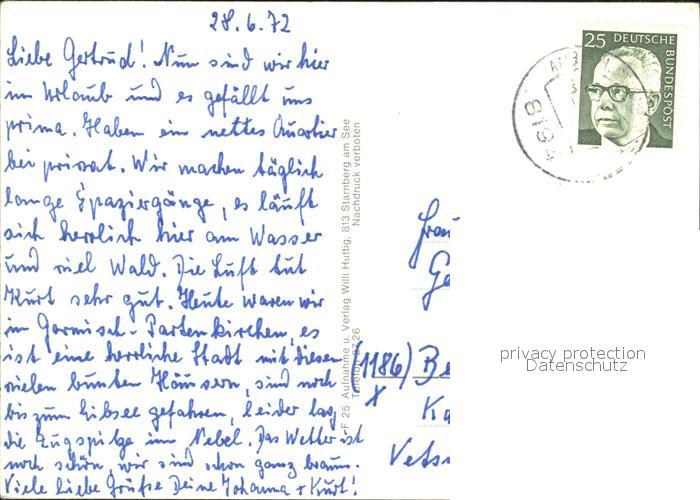 28.6.72
Liebe Gertrud! Nun sind wir hier
im Urlaub und es gefällt uns
prima. Haben ein nettes Quartier
bei privat. Wir machen täglich
lange Spaziergänge, es läuft
sich herrlich hier am Wasser
und viel Wald. Die Luft tut
Kurt sehr gut. Heute waren wir
in Garmisch-Partenkirchen, es
ist eine herrliche Stadt mit diesen
vielen bunten Häusern, sind noch
bis zum Eibsee gefahren, leider lag
die Zugspitze im Nebel. Das Wetter ist
noch schön, wir sind schon ganz braun.
Viele liebe Grüße Deine Johanna + Kurt!
F 25 Aufnahme u. Verlag Willi Huttig, 813 Starnberg am See
Nachdruck verboten
25 DEUTSCHE
BUNDESPOST
8194
Frau
Ge
(1186) Be
X
Ka
privacy protection
Datenschutz